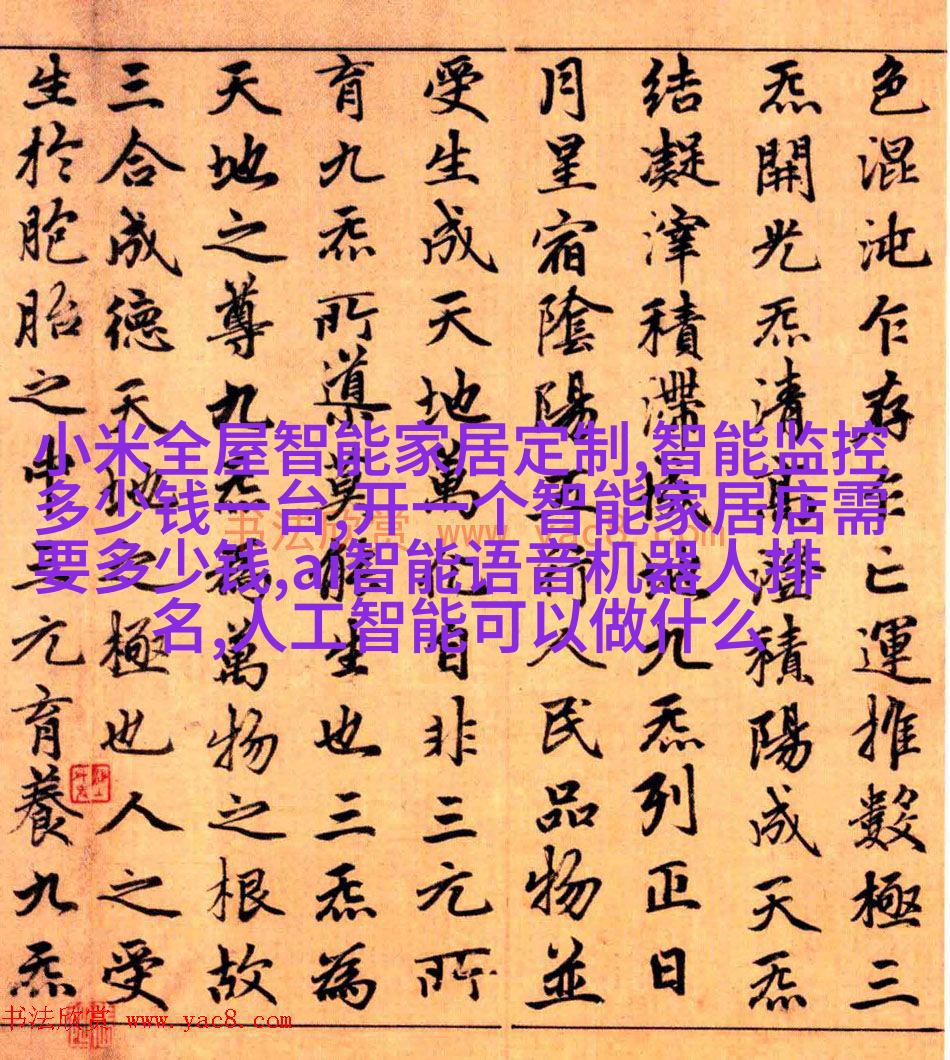 色混沌乍存乍亡運推數極三
炁開光炁清高澄積陽成天炁
結凝滓積滯成地九炁列正日
月星宿陰陽五行人民品物並
受生成天地萬化自非三元所
育九炁所導莫能生也三炁為
天地之尊九炁為萬物之根故
三合成德天地之極也人之受
生於胞胎之中三元育養九炁
小米全屋智能家居定制,智能监控
多少钱一台,开一个智能家居店需
要多少钱,ai智能语音机器人排
名,人工智能可以做什么
书法欣赏 www.yac8.com
书法欣赏 www.yac8.com